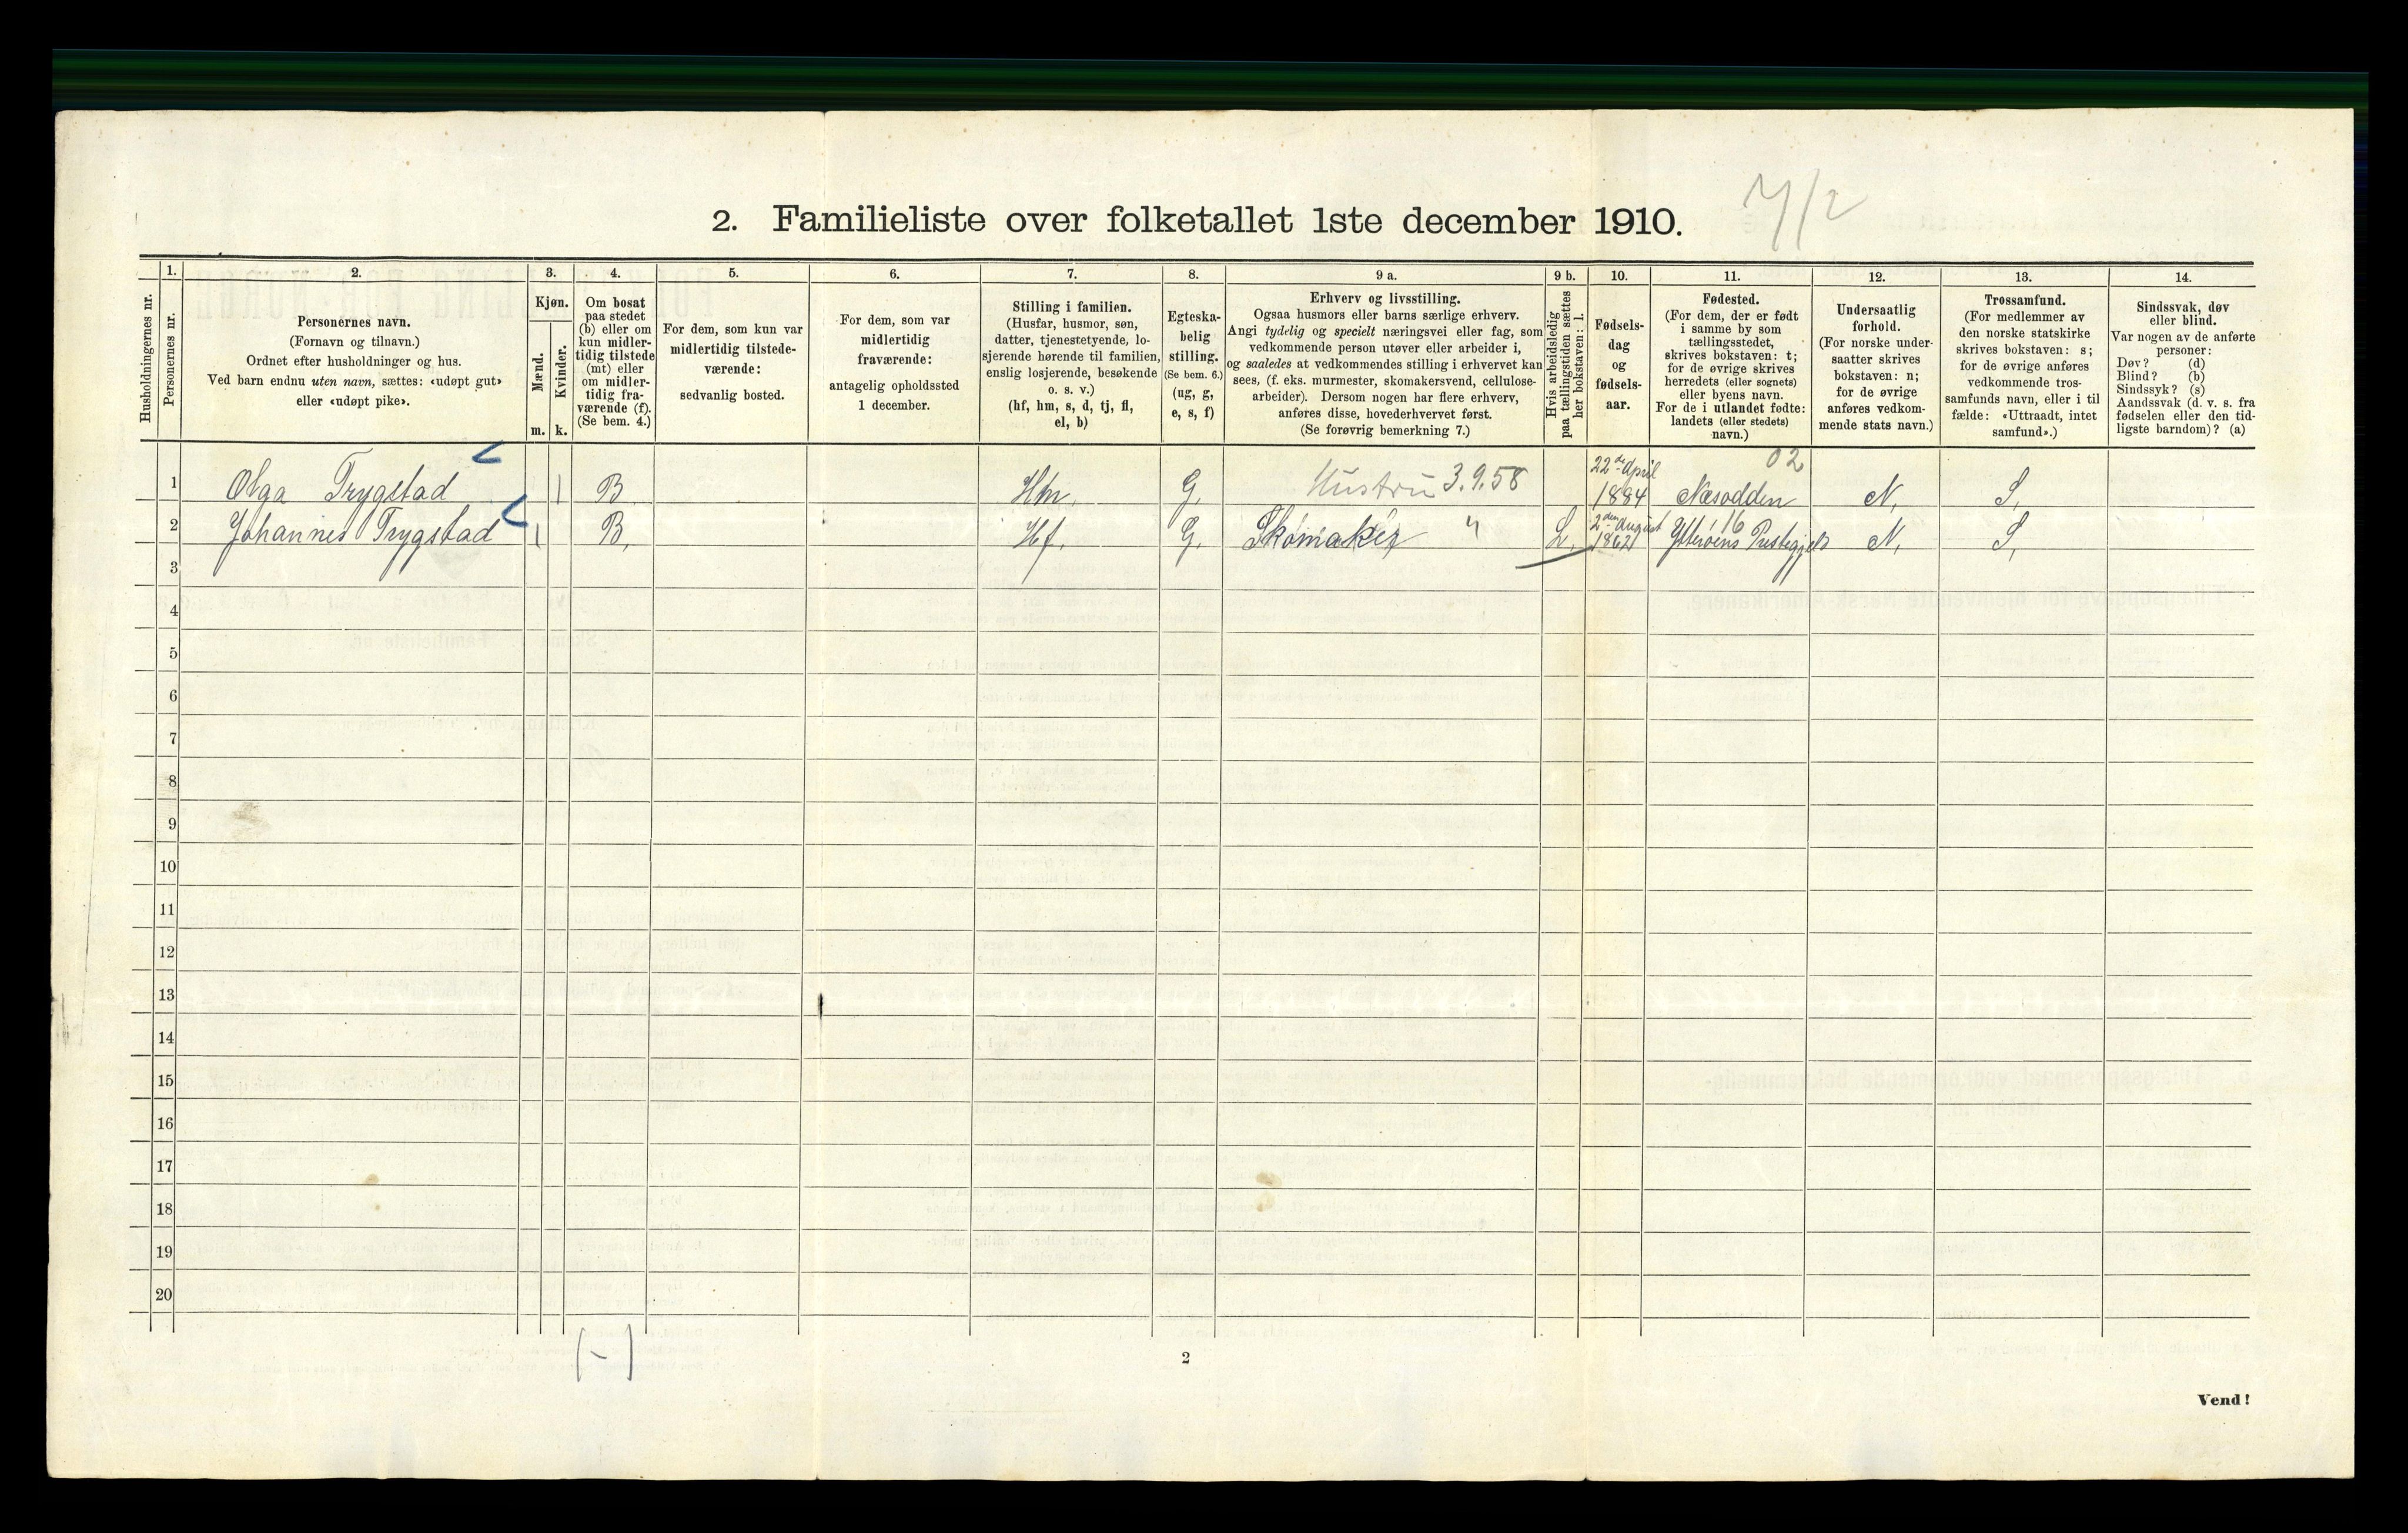 2. Familieliste over folketallet 1ste december 1910.
7/2
Husholdningernes nr.
1.
Personernes nr.
2.
Personernes navn.
(Fornavn og tilnavn.)
Ordnet efter husholdninger og hus.
Ved barn endnu uten navn, sættes: «udøpt gut»
eller «udøpt pike».
3.
Kjøn.
Mænd.
Kvinder.
m.
k.
4.
Om bosat
paa stedet
(b) eller om
kun midler-
tidig tilstede
(mt) eller
om midler-
tidig fra-
værende (f).
(Se bem. 4.)
5.
For dem, som kun var
midlertidig tilstede-
værende:
sedvanlig bosted.
6.
For dem, som var
midlertidig
fraværende:
antagelig opholdssted
1 december.
7.
Stilling i familien.
(Husfar, husmor, søn,
datter, tjenestetyende, lo-
sjerende hørende til familien,
enslig losjerende, besøkende
o. s. v.)
(hf, hm, s, d, tj, fl,
el, b)
8.
Egteska-
belig
stilling.
(Se bem. 6.)
(ug, g,
e, s, f)
9 a.
Erhverv og livsstilling.
Ogsaa husmors eller barns særlige erhverv.
Angi tydelig og specielt næringsvei eller fag, som
vedkommende person utøver eller arbeider i,
og saaledes at vedkommendes stilling i erhvervet kan
sees, (f. eks. murmester, skomakersvend, cellulose-
arbeider). Dersom nogen har flere erhverv,
anføres disse, hovederhvervet først.
(Se forøvrig bemerkning 7.)
9 b.
Hvis arbeidsledig
paa tællingstiden sættes
her bokstaven: l.
10.
Fødsels-
dag
og
fødsels-
aar.
11.
Fødested.
(For dem, der er født
i samme by som
tællingsstedet,
skrives bokstaven: t;
for de øvrige skrives
herredets (eller sognets)
eller byens navn.
For de i utlandet fødte:
landets (eller stedets)
navn.)
12.
Undersaatlig
forhold.
(For norske under-
saatter skrives
bokstaven: n;
for de øvrige
anføres vedkom-
mende stats navn.)
13.
Trossamfund.
(For medlemmer av
den norske statskirke
skrives bokstaven: s;
for de øvrige anføres
vedkommende tros-
samfunds navn, eller i til
fælde: «Uttraadt, intet
samfund».)
14.
Sindssvak, døv
eller blind.
Var nogen av de anførte
personer:
Døv? (d)
Blind? (b)
Sindssyk? (s)
Aandssvak (d. v. s. fra
fødselen eller den tid-
ligste barndom)? (a)
1 Olga Trygstad 1 B. Hm. G. Hustru 3.9.58 22de April 1884 Næsodden 02 N. S.
2 Johannes Trygstad 1 B. Hf. G. Skomaker " L. 2den August 1862 Ytterøens Prestegjeld 16 N. S.
3
4
5
6
7
8
9
10
11
12
13
14
15
16
17
18
19
20
(-)
2
Vend!